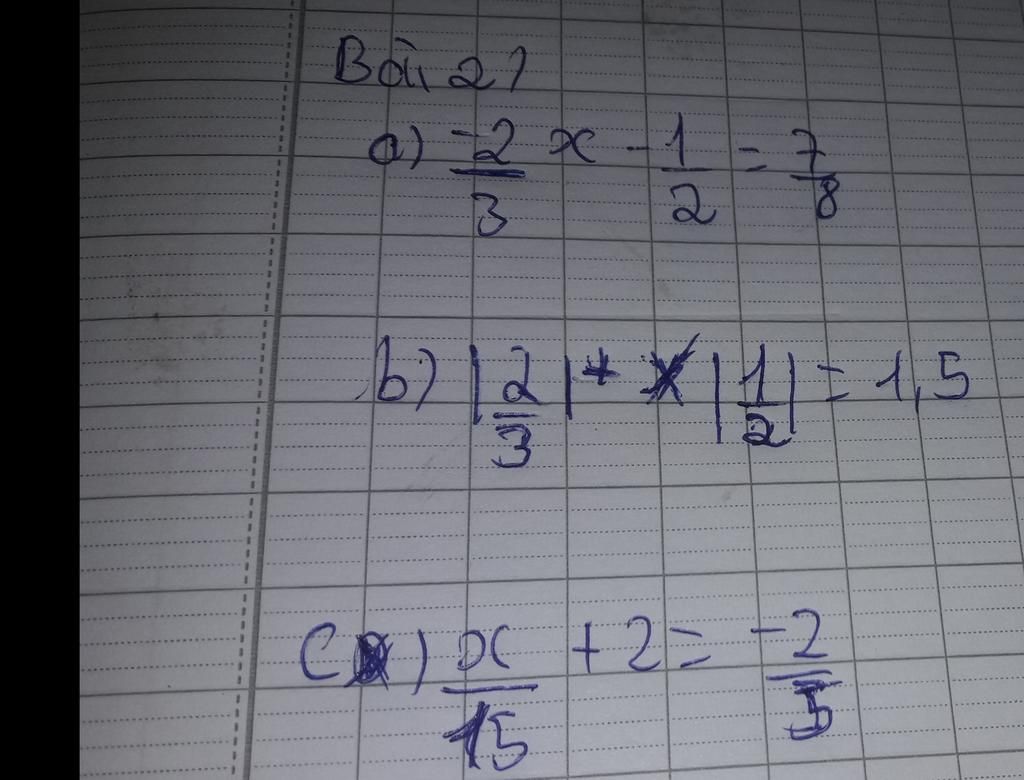 Bài 2)
a) -2/3 x - 1/2 = 7/8
b) |2/3| + |1/2| = 1,5
C) x/15 + 2 = -2/5